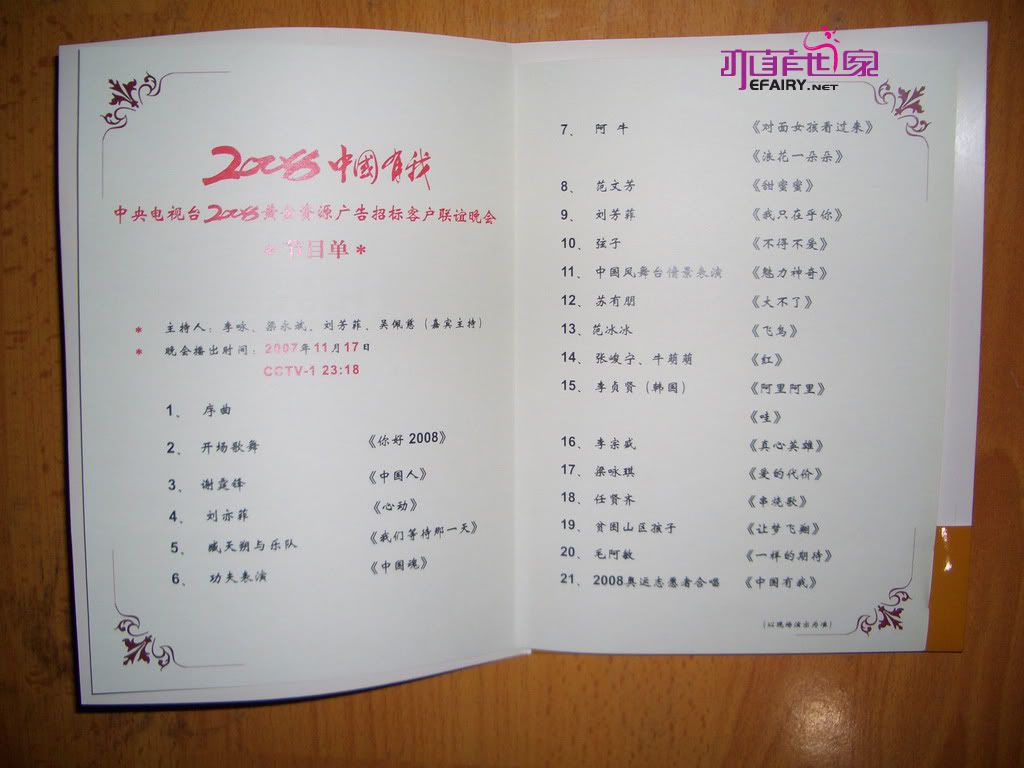 亦菲世家
EFAIRY.NET
2008 中國有我
中央电视台2008黄金资源广告招标客户联谊晚会
* 节目单 *
* 主持人：李咏、梁永斌、刘芳菲、吴佩慈（嘉宾主持）
* 晚会播出时间：2007年11月17日
CCTV-1 23:18
1、 序曲
2、 开场歌舞 《你好 2008》
3、 谢霆锋 《中国人》
4、 刘亦菲 《心动》
5、 臧天朔与乐队 《我们等待那一天》
6、 功夫表演 《中国魂》
7、 阿 牛 《对面女孩看过来》
《浪花一朵朵》
8、 范文芳 《甜蜜蜜》
9、 刘芳菲 《我只在乎你》
10、 弦子 《不得不爱》
11、 中国风舞台情景表演 《魅力神奇》
12、 苏有朋 《大不了》
13、范冰冰 《飞鸟》
14、 张峻宁、牛萌萌 《红》
15、 李贞贤（韩国） 《阿里阿里》
《哇》
16、 李宗盛 《真心英雄》
17、 梁咏琪 《爱的代价》
18、 任贤齐 《串烧歌》
19、 贫困山区孩子 《让梦飞翔》
20、 毛阿敏 《一样的期待》
21、 2008奥运志愿者合唱 《中国有我》
（以现场演出为准）